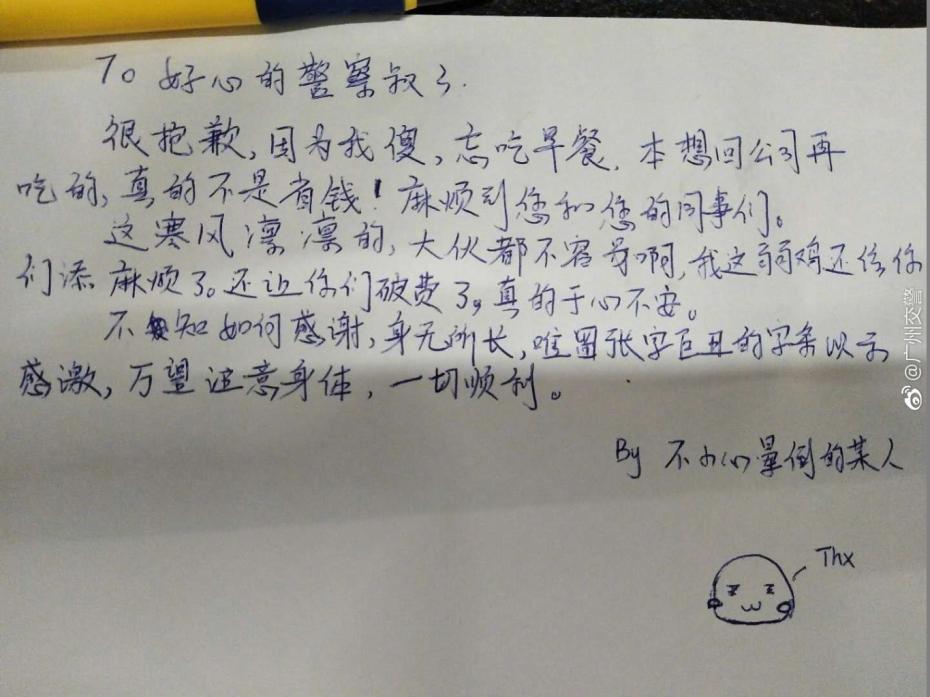 To 好心的警察叔々.
很抱歉,因为我傻,忘吃早餐.本想回公司再
吃的,真的不是省钱!麻烦到您和您的同事们。
这寒风凛凛的,大伙都不容易啊,我这弱鸡还给你
们添麻烦了。还让你们破费了。真的于心不安。
不知如何感谢,身无所长,唯留张字巨丑的字条以示
感激,万望注意身体,一切顺利。
By 不小心晕倒的某人
Thx
@广州交警